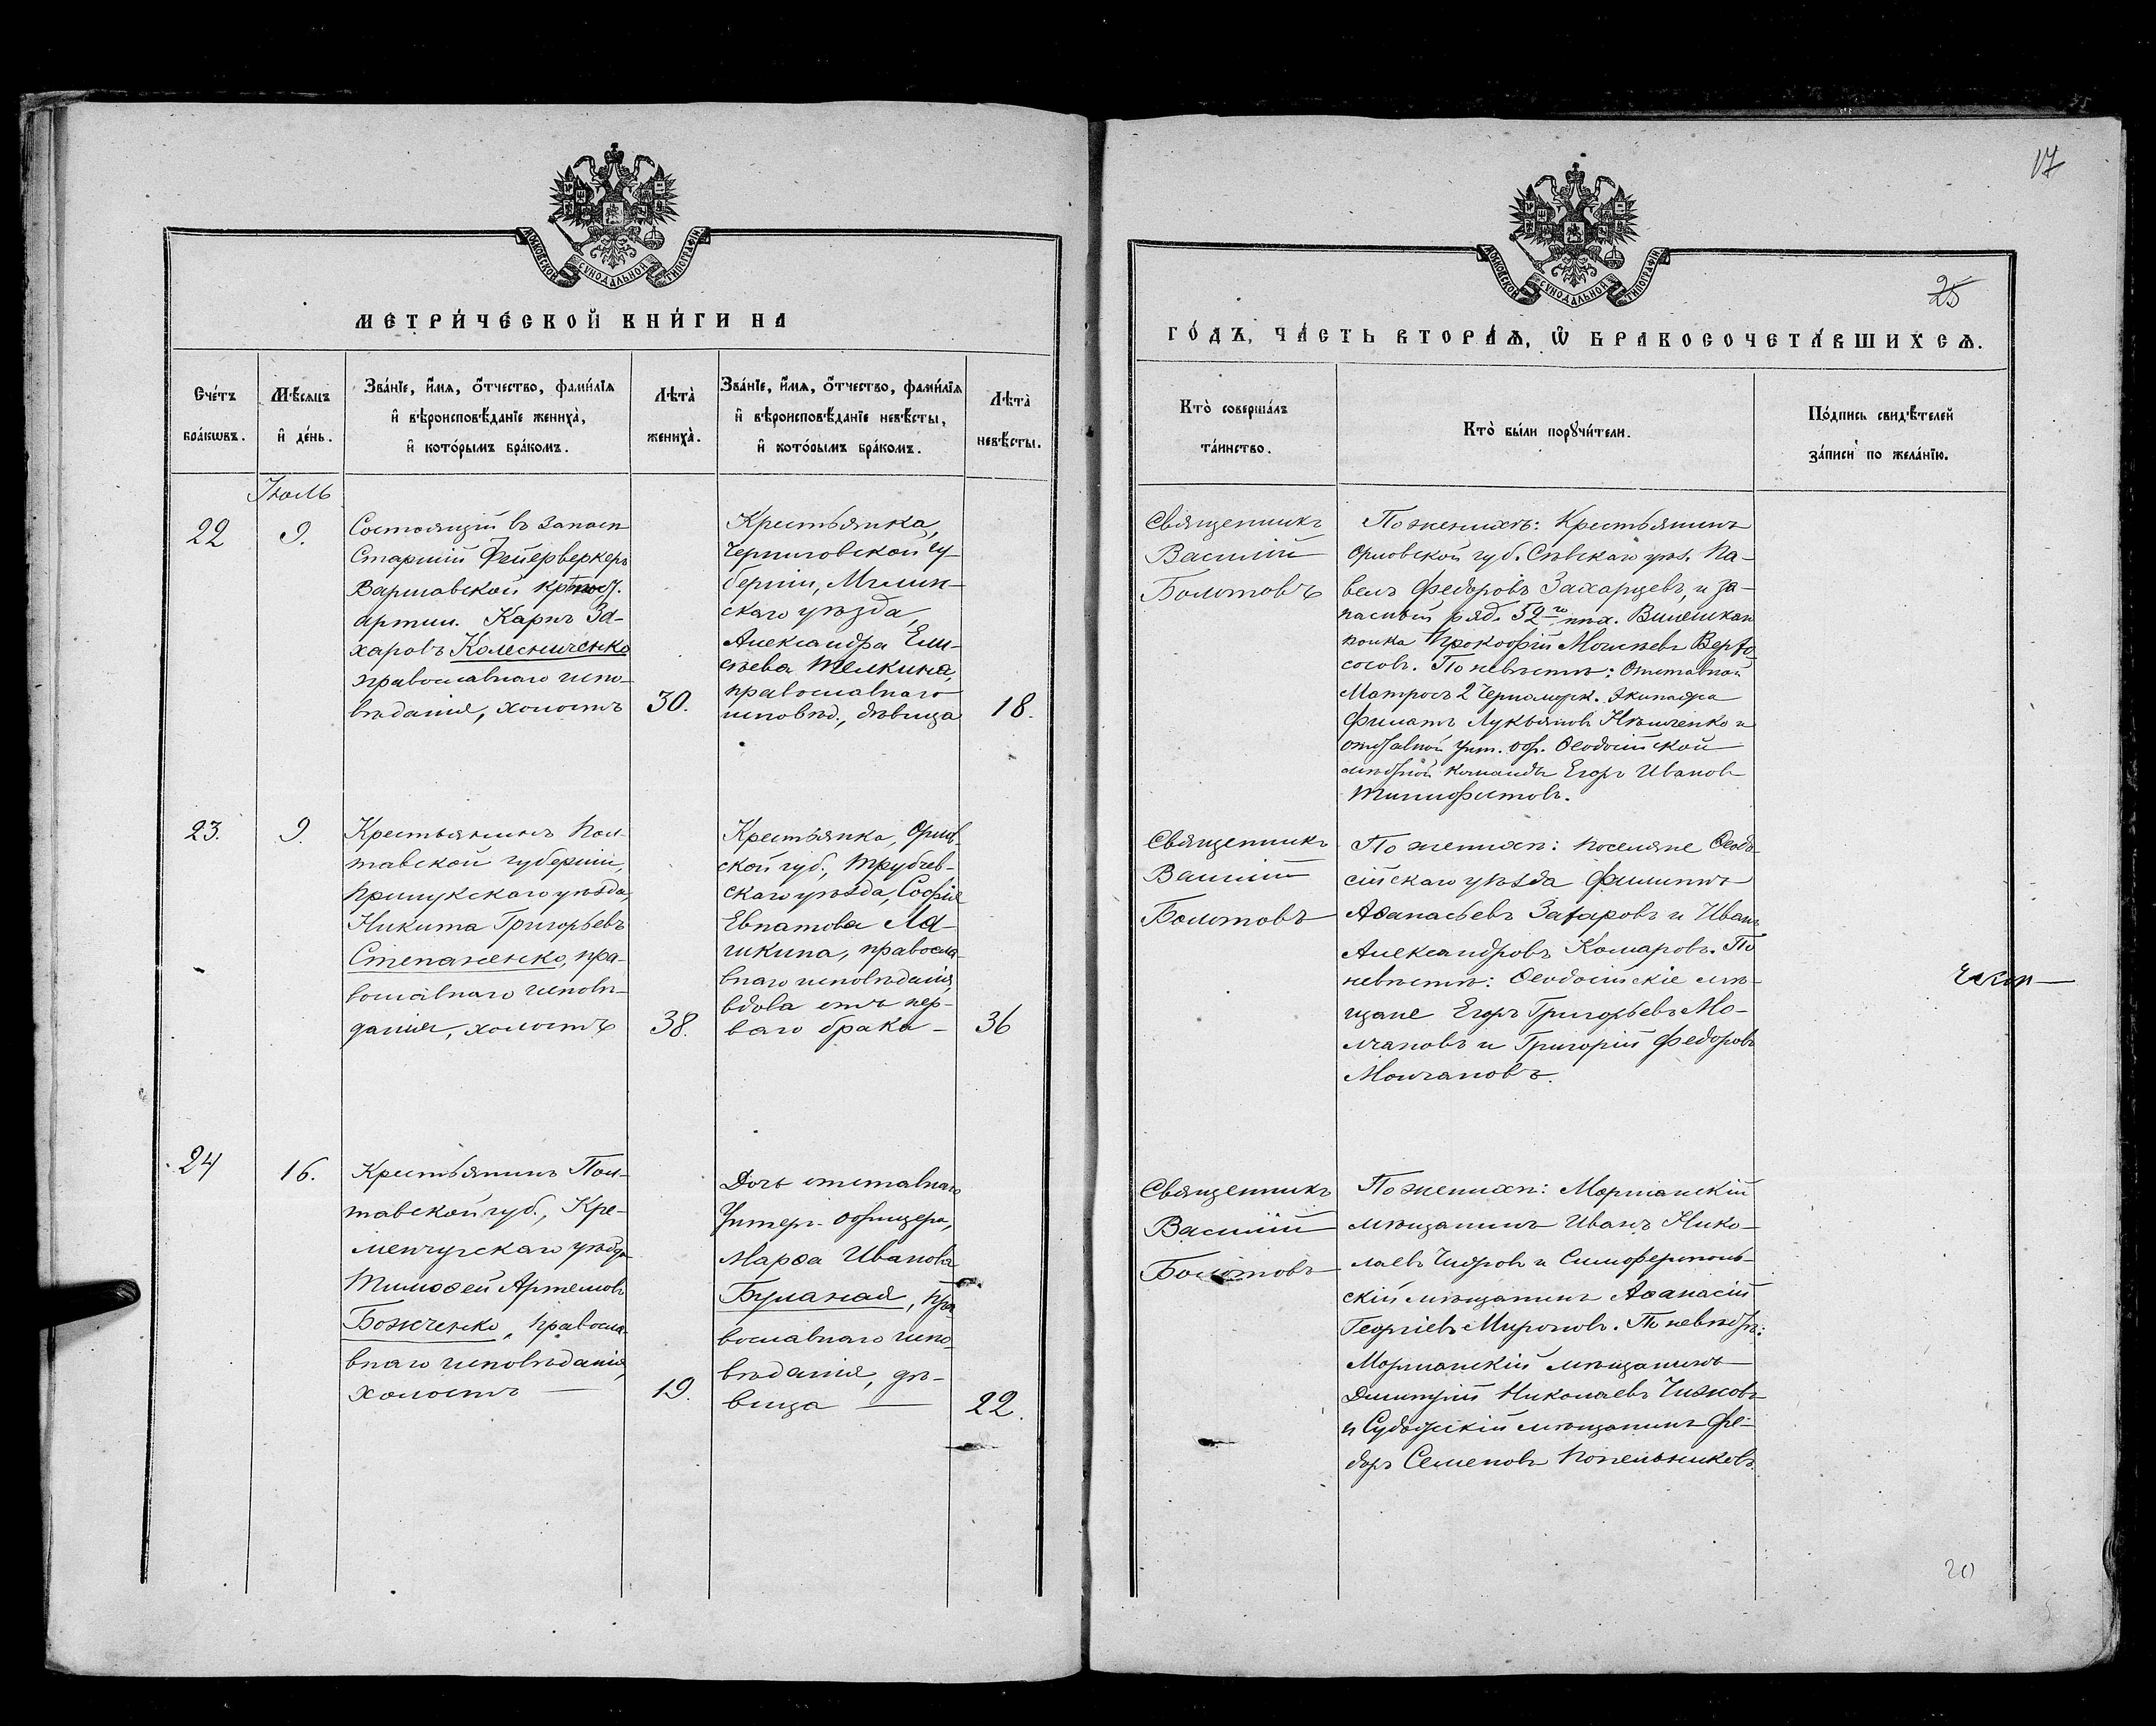 17
МОСКОВСКОЙ СѴНОДАЛЬНОЙ ТИПОГРАФІИ
МОСКОВСКОЙ СѴНОДАЛЬНОЙ ТИПОГРАФІИ
25
МЕТРИ́ЧЕСКОЙ КНИ́ГИ НА
ГО́ДЪ, ЧА́СТЬ ВТОРА́Ѧ, Ѽ БРАКОСОЧЕТА́ВШИХСѦ.
Сче́тъ бра́кѡвъ.
Мѣ́сѧцъ и҆ де́нь.
Зва́нїе, и҆́мѧ, о҆́тчество, фами́лїѧ
и҆ вѣроисповѣ́данїе жениха̀,
и҆ кото́рымъ бра́комъ.
Лѣта̀ жениха̀.
Зва́нїе, и҆́мѧ, о҆́тчество, фами́лїѧ
и҆ вѣроисповѣ́данїе невѣ́сты,
и҆ кото́рымъ бра́комъ.
Лѣта̀ невѣ́сты.
Кто̀ соверша́лъ та́инство.
Кто̀ бы́ли порꙋчи́тели.
По́дпись свидѣ́телей
за́писи по жела́нїю.
Іюль
22
9.
Состоящій въ запасѣ
Старшій Фейерверкеръ
Варшавской крѣпост.
артил. Карпъ За-
харовъ Колесниченко
православнаго испо-
вѣданія, холостъ
30.
Крестьянка,
Черниговской гу-
берніи, Мглин-
скаго уѣзда,
Александра Ели-
сѣева Телкина,
православнаго
исповѣд., дѣвица
18.
Священникъ
Василій
Болотовъ
По женихѣ: Крестьянинъ
Орловской губ. Сѣвскаго уѣз. Па-
велъ Федоровъ Захарцевъ, и за-
пасный ряд. 52го пѣх. Виленскаго
полка Прокофій Моисѣевъ
По невѣстѣ: Отставной
Матросъ 2 Черноморк. Экипажа
Филатъ Лукьяновъ и
отставной Унт. Оф. Ѳеодосійской
команды Егоръ Ивановъ
23.
9.
Крестьянинъ Пол-
тавской губерніи,
Прилукскаго уѣзда,
Никита Григорьевъ
Степаненко, пра-
вославнаго исповѣ-
данія, холостъ
38.
Крестьянка, Орлов-
ской губ., Трубчев-
скаго уѣзда, Софія
Евпатова Ла-
шкина, правосла-
внаго исповѣданія,
вдова отъ пер-
ваго брака –
36
Священникъ
Василій
Болотовъ
По женихѣ: поселяне Ѳеодо-
сійскаго уѣзда Филиппъ
Аѳанасьевъ Захаровъ и Иванъ
Александровъ Комаровъ. По
невѣстѣ: Ѳеодосійскіе мѣ-
щане Егоръ Григорьевъ Мо-
лчановъ и Григорій Федоровъ
Молчановъ.
24
16.
Крестьянинъ Пол-
тавской губ., Кре-
менчугскаго уѣзда
Тимоѳей Артемовъ
Божченко, правосла-
внаго исповѣданія,
холостъ —
19.
Дочь отставнаго
Унтеръ-офицера,
Марѳа Иванова
Буланая, пра-
вославнаго испо-
вѣданія, дѣ-
вица —
22.
Священникъ
Василій
Болотовъ
По женихѣ: Моршанскій
мѣщанинъ Иванъ Нико-
лаевъ и Симферополь-
скій мѣщанинъ Аѳанасій
Георгіевъ Мироновъ. По невѣстѣ:
Моршанскій мѣщанинъ
Дмитрій Николаевъ Чижовъ
и мѣщанинъ Фе-
доръ Семеновъ Копельниковъ.
20